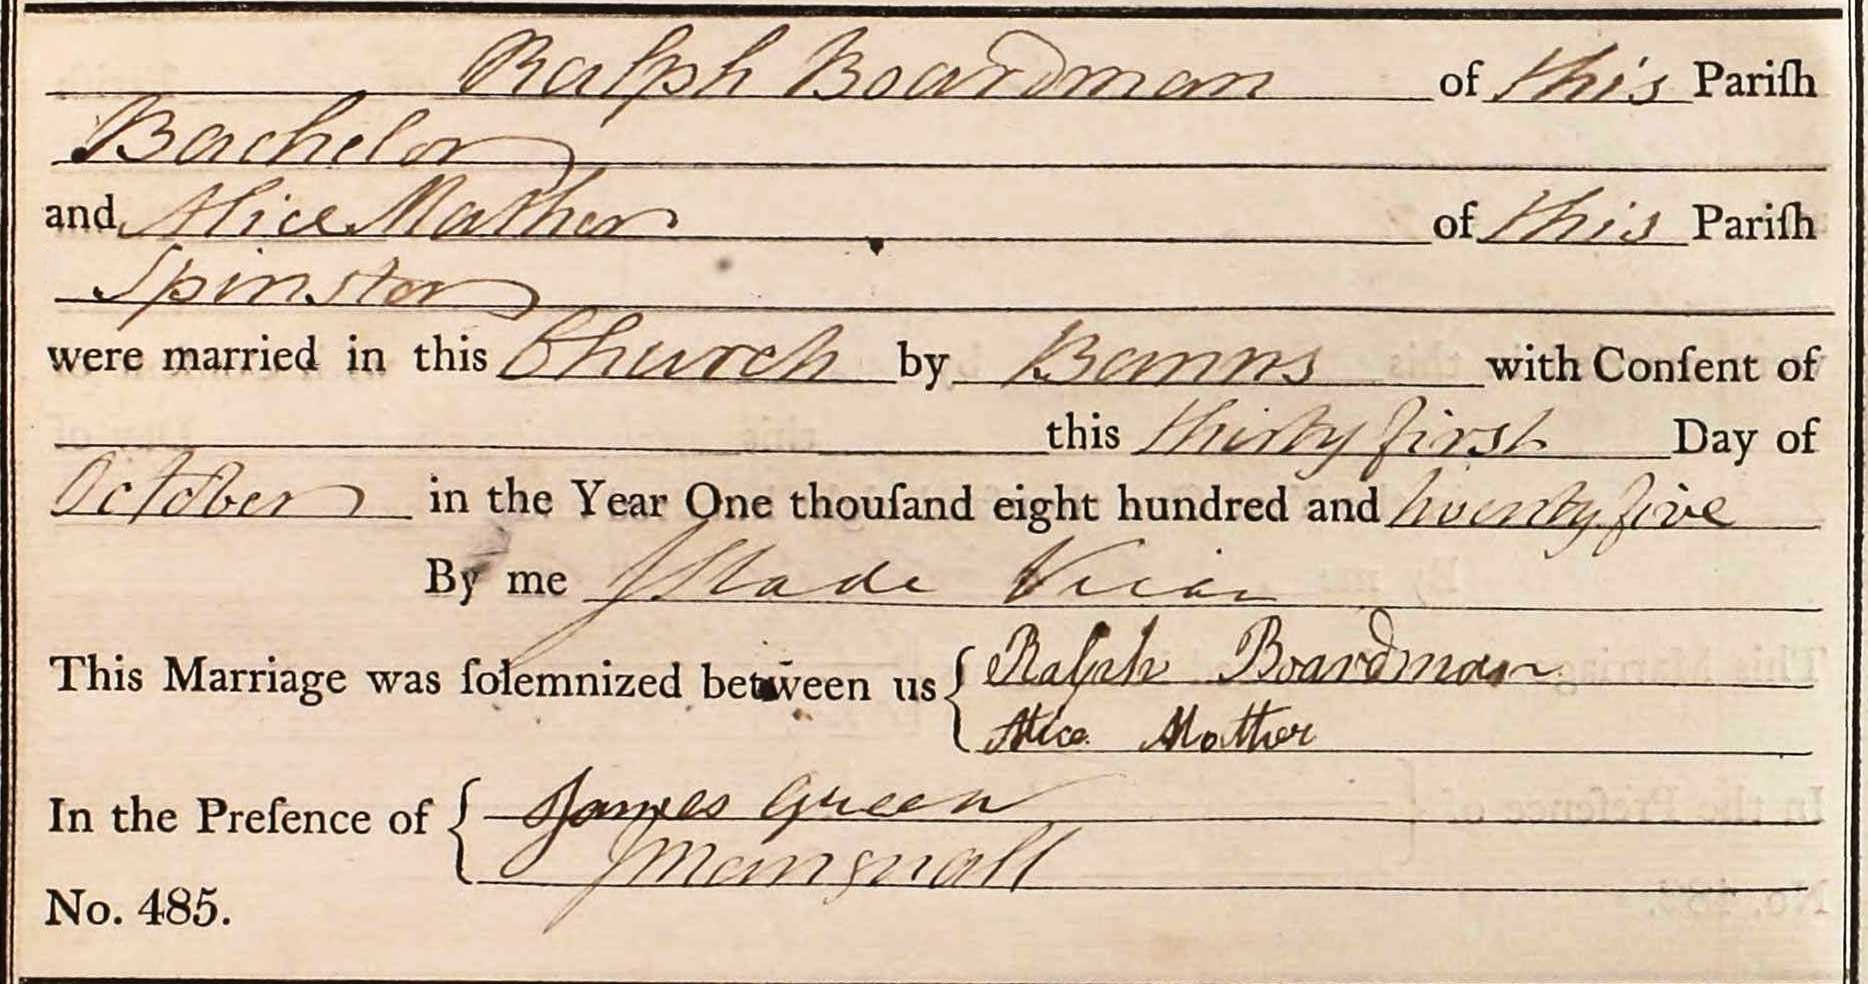 Ralph Boardman of this Pariſh
Bachelor
and Alice Mather of this Pariſh
Spinster
were married in this Church by Banns with Conſent of
this thirty first Day of
October in the Year One thouſand eight hundred and twenty five
By me J Slade Vicar
This Marriage was ſolemnized between us Ralph Boardman
Alice Mather
In the Preſence of James Green
J Mangnall
No. 485.